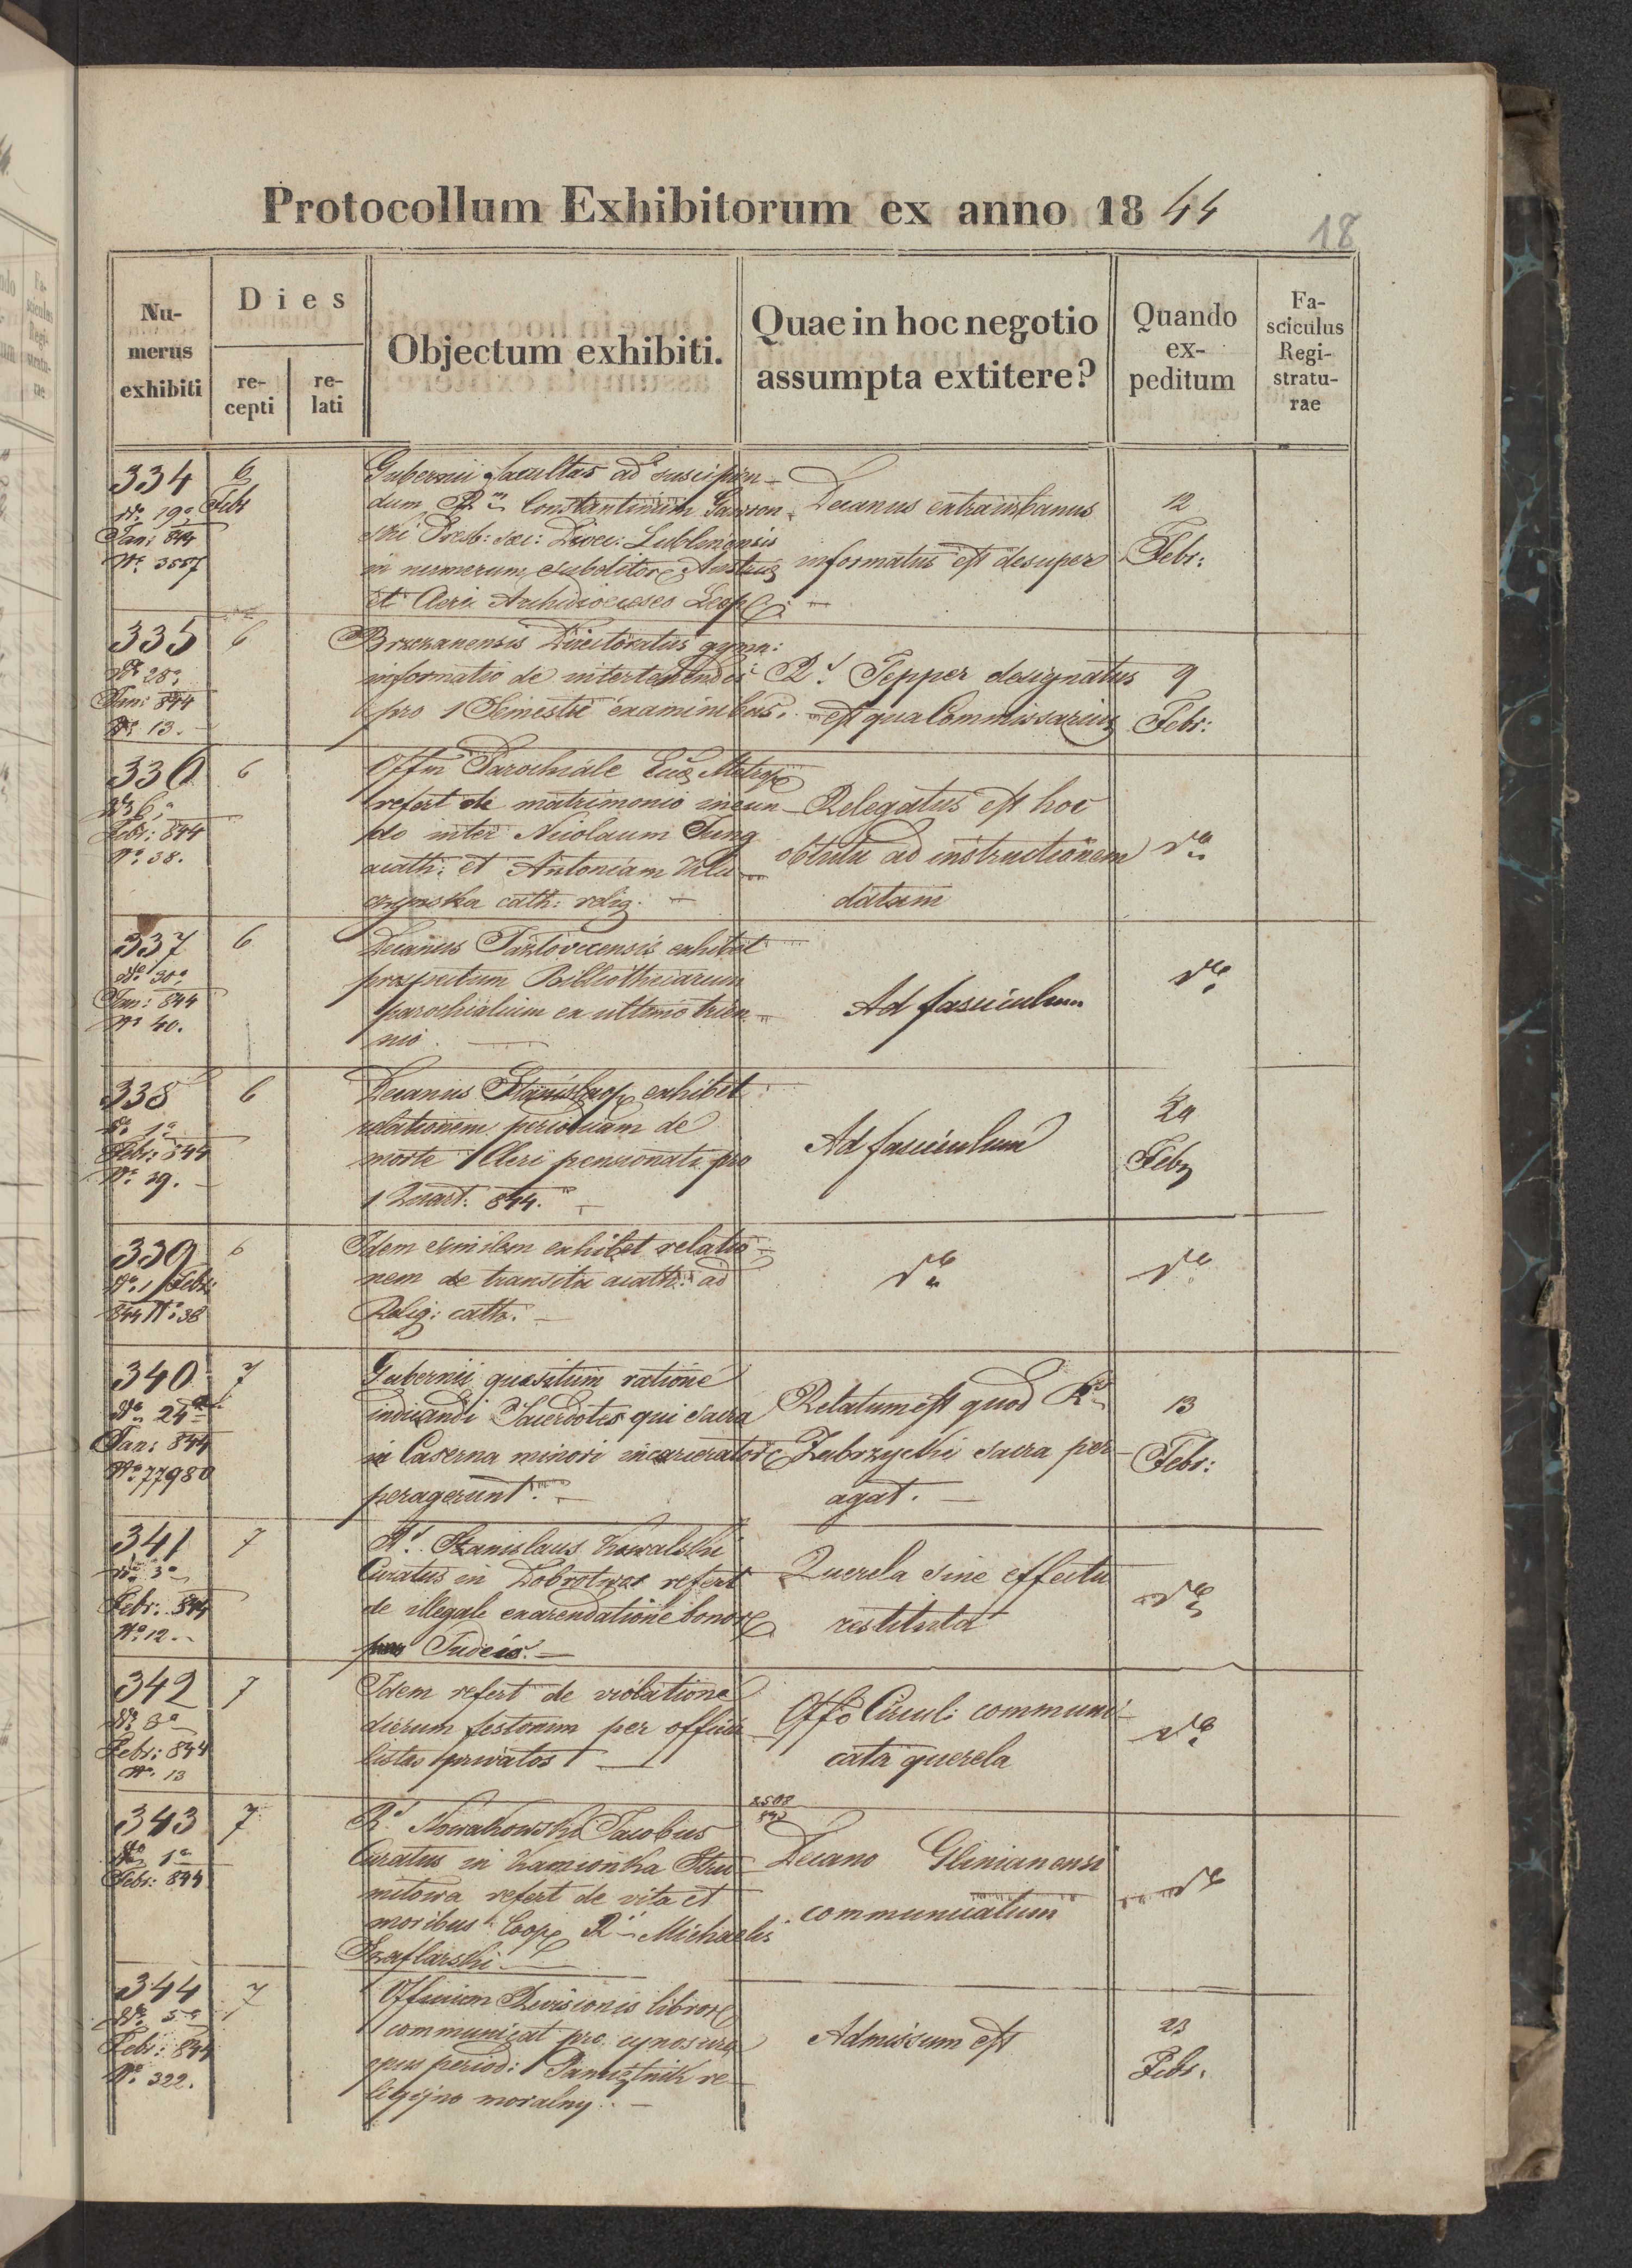 Protocollum Exhibitorum ex anno 1844
18
Nu-
merus
exhibiti
Dies
re-
cepti
re-
lati
Objectum exhibiti.
Quae in hoc negotio
assumpta extitere?
Quando
ex-
peditum
Fa-
sciculus
Regi-
stratu-
rae
334
6
Febr
Jan: 844
No 3557
Gubernii facultas ad suscipien-
dum Rm Constantinum
Presb: sec: Dioec: Lublinensis
in numerum subditor Austriae
et Cleri Archidioeceseos Leop:
Decanus extraurbanus
informatus est desuper
12
Febr:
335
6
28
Jan: 844
No 13.
Brzezanensis Directoratus gymn:
informatio de intertenendis
pro 1 Semestri examinibus.
Rd Tepper designatus
est qua Commissarius
9
Febr:
336
6
6
Febr: 844
No 38.
Offm Parochiale Metrop
refert de matrimonio ineun-
do inter Nicolaum Jung
acath: et Antoniam
cath: relig.
Relegatus est hoc
obtutu ad instructionem
datam
dto
337
6
No 30
Jan: 844
No 40.
Decanus Jazlovecensis exhibet
prospectum Bibliothecarum
parochialium ex ultimo trien-
nio.
Ad fasciculum
dto
338
6
1
Febr: 844
No 39.
Decanus Stanislaop exhibet
relationem periodicam de
morte Cleri pensionati pro
1 Quart: 844.
Ad fasciculum
24
Febr
339
6
No 1 Febr:
844 No 38
Idem similem exhibet relatio-
nem de transitu acath: ad
Relig: cath:
dto
dto
340
7
24
Jan: 844
No 77980
Gubernii quaesitum ratione
indicandi Sacerdotes qui sacra
in Caserna minori incarcerator
peragerunt.
Relatum est quod Rd
Zubrzycki sacra per-
agat.
13
Febr:
341
7
3
Febr: 844
No 12.
Rd Stanislaus Kowalski
Curatus in Dobrotwor refert
de illegale exarendatione bonor
Judeis.
Querela sine effectu
restituta
dto
342
7
Febr: 844
No 13
Idem refert de violatione
dierum festorum per officia-
listas privatos
Offo Circul: communi-
cata querela
dto
343
7
1
Febr: 844
Rd Nowakowski Jacobus
Curatus in Kamionka Stru-
milowa refert de vita et
moribus Coop Rdi Michaelis
Szaflarski
Decano Glinianensi
communicatum
dto
344
7
5
Febr: 844
No 322.
Officium Revisionis libror
communicat pro cynosura
opus period: Pamiętnik re-
ligijno moralny.
Admissum est
23
Febr.